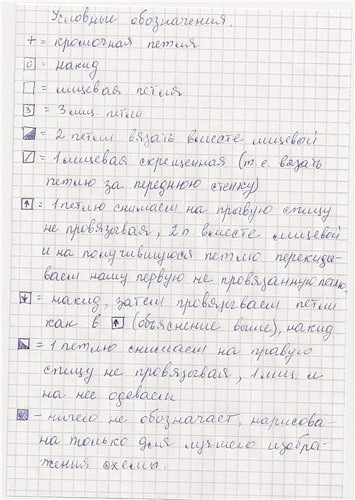 Условные обозначения.
+ = кромочная петля
o = накид
= лицевая петля
3 = 3 лиц. петли
= 2 петли вязать вместе лицевой
/ = 1 лицевая скрещенная (т.е. вязать
петлю за переднюю стенку)
↑ = 1 петлю снимаем на правую спицу
не провязывая, 2 п вместе лицевой
и на получившуюся петлю перекиды-
ваем нашу первую не провязанную петлю.
= накид, затем провязываем петли
как в ↑ (объяснение выше), накид
= 1 петлю снимаем на правую
спицу не провязывая, 1 лиц. и
на нее одеваем
- ничего не обозначает, нарисова-
на только для лучшего изобра-
жения схемы.